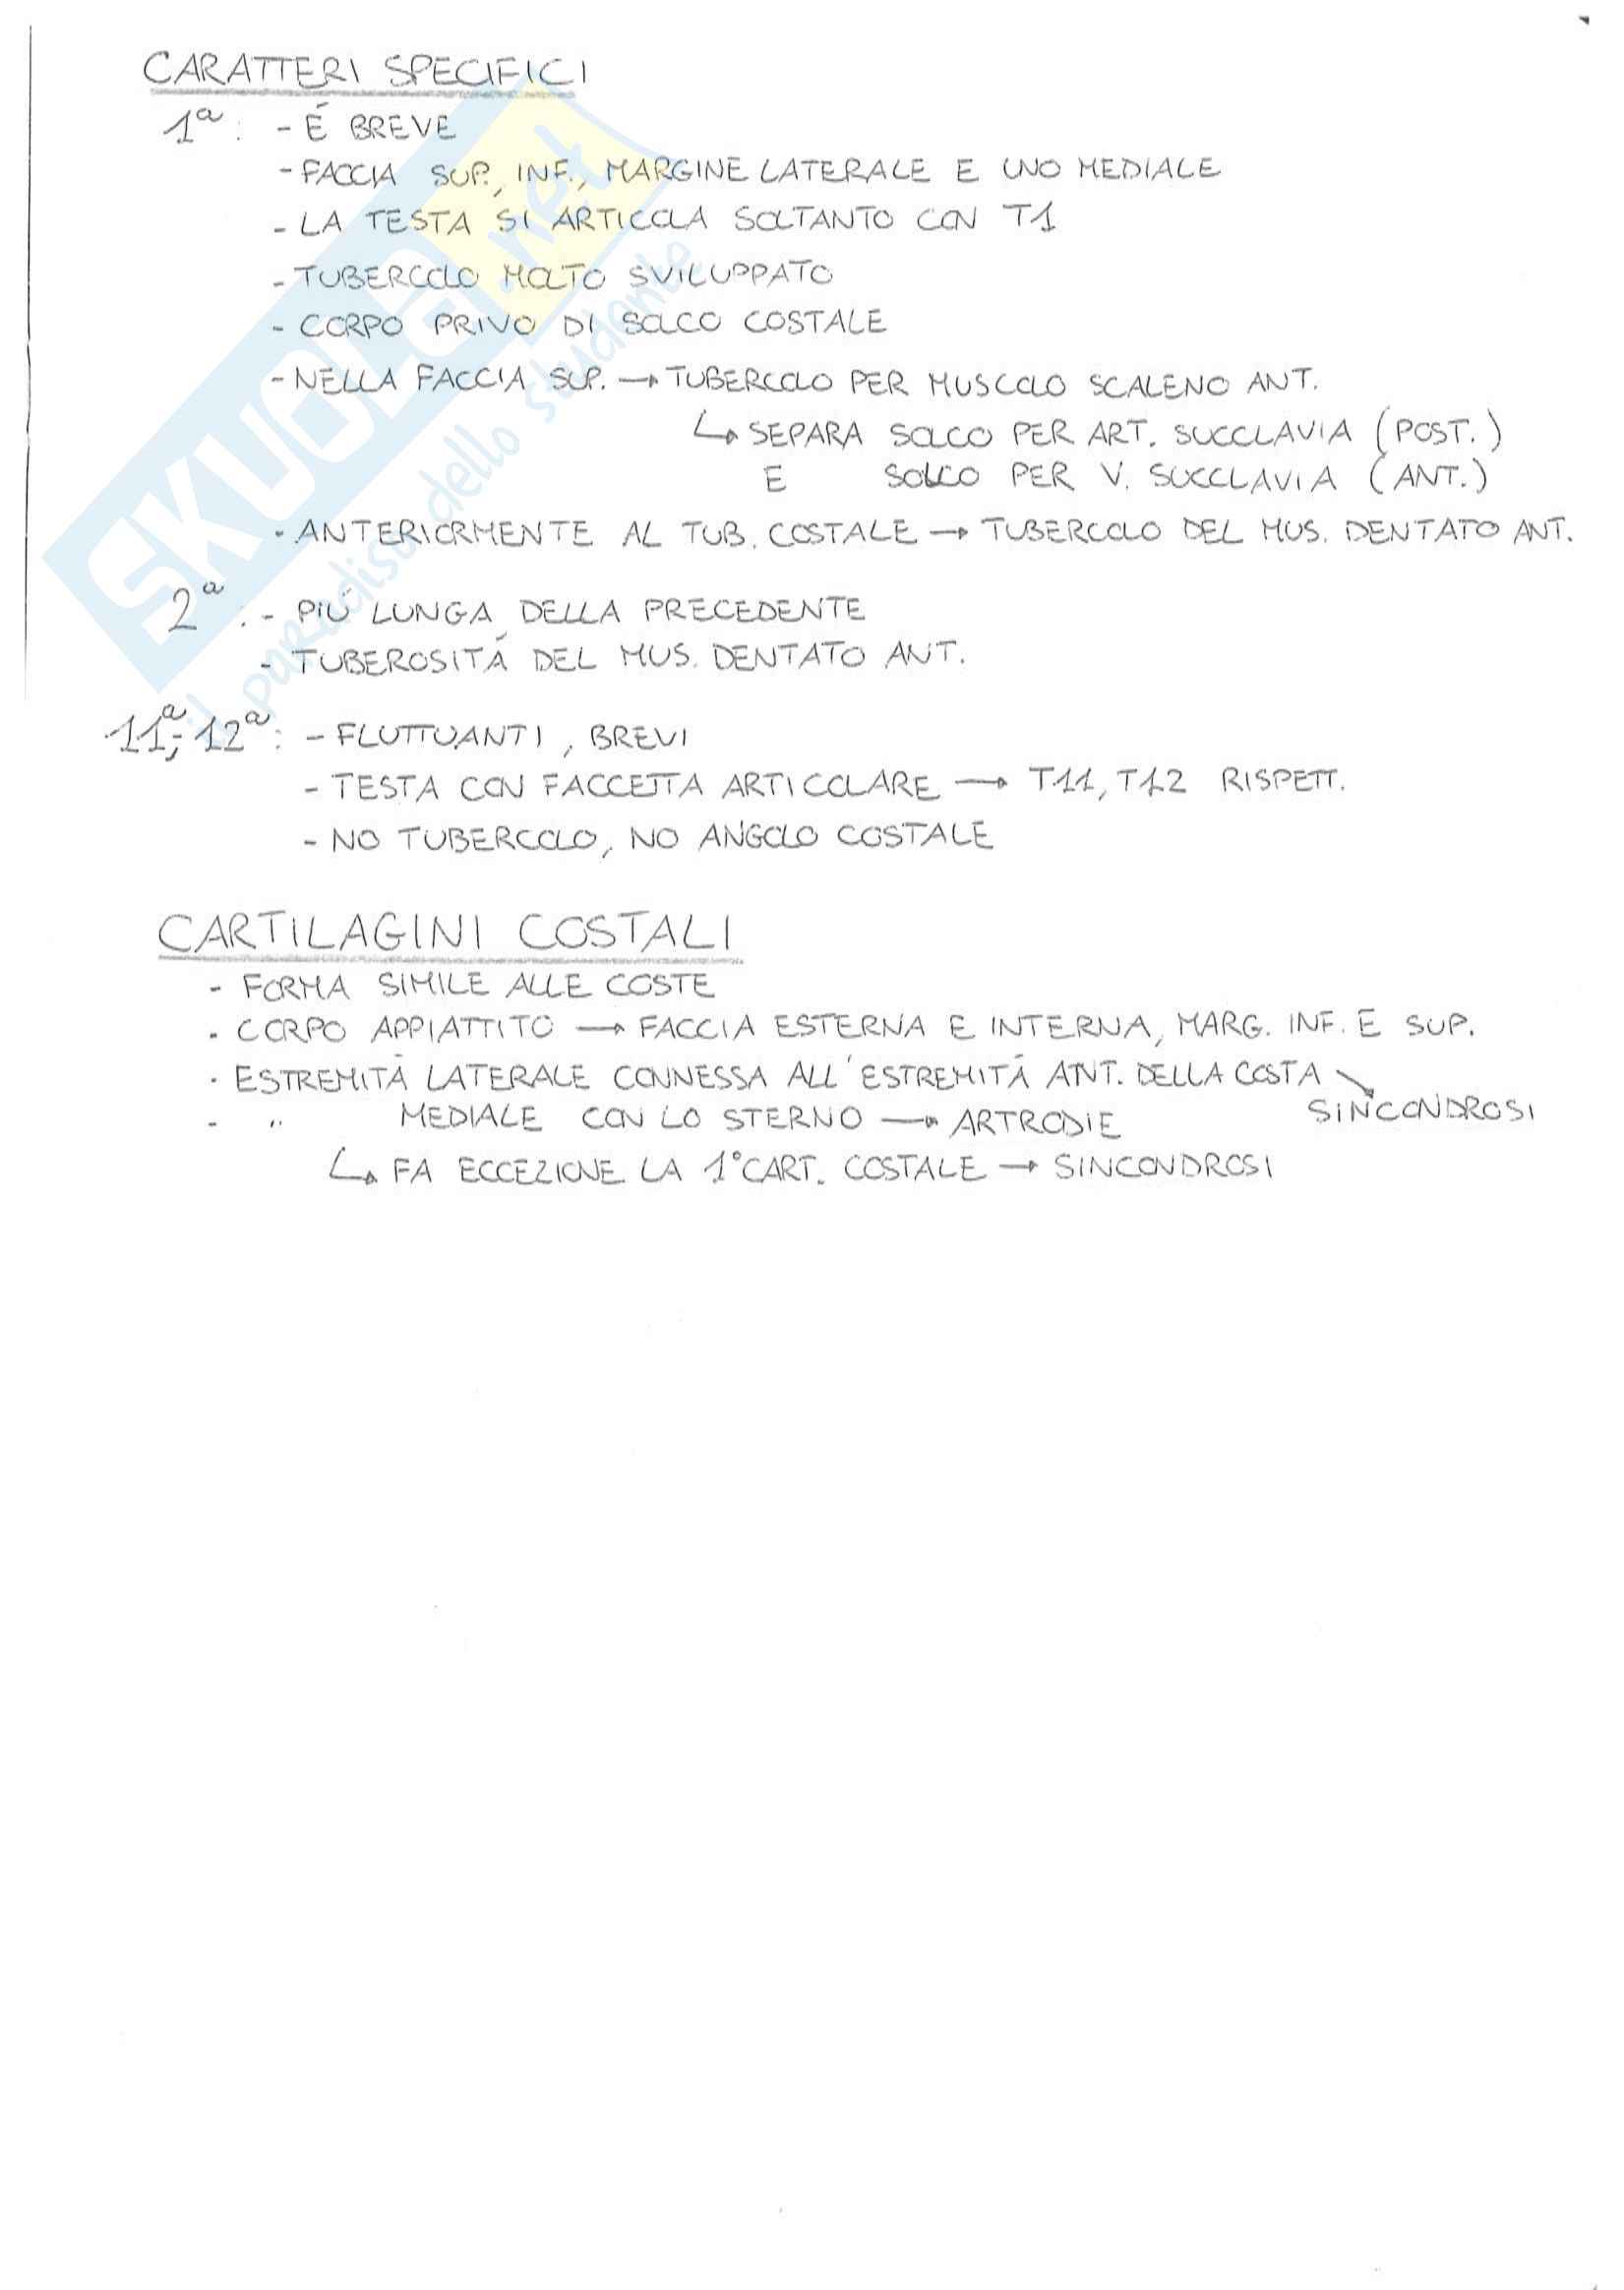 CARATTERI SPECIFICI
1ª: - É BREVE
- FACCIA SUP., INF., MARGINE LATERALE E UNO MEDIALE
- LA TESTA SI ARTICOLA SOLTANTO CON T1
- TUBERCOLO MOLTO SVILUPPATO
- CORPO PRIVO DI SOLCO COSTALE
- NELLA FACCIA SUP. → TUBERCOLO PER MUSCOLO SCALENO ANT.
↳ SEPARA SOLCO PER ART. SUCCLAVIA (POST.)
E SOLCO PER V. SUCCLAVIA (ANT.)
- ANTERIORMENTE AL TUB. COSTALE → TUBERCOLO DEL MUS. DENTATO ANT.
2ª: - PIÚ LUNGA DELLA PRECEDENTE
- TUBEROSITÁ DEL MUS. DENTATO ANT.
11ª, 12ª: - FLUTTUANTI, BREVI
- TESTA CON FACCETTA ARTICOLARE → T11, T12 RISPETT.
- NO TUBERCOLO, NO ANGOLO COSTALE
CARTILAGINI COSTALI
- FORMA SIMILE ALLE COSTE
- CORPO APPIATTITO → FACCIA ESTERNA E INTERNA, MARG. INF. E SUP.
- ESTREMITÁ LATERALE CONNESSA ALL'ESTREMITÁ ANT. DELLA COSTA ↘ SINCONDROSI
- " MEDIALE CON LO STERNO → ARTRODIE
↳ FA ECCEZIONE LA 1° CART. COSTALE → SINCONDROSI
SKUOLA.net
il paradiso dello studente